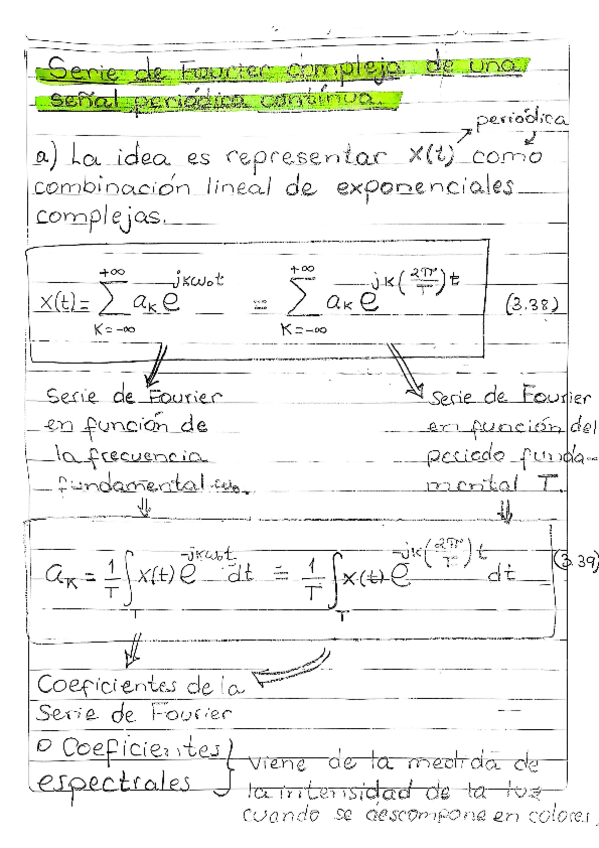 Serie de Fourier compleja de una
señal periódica contínua.
periódica
a) La idea es representar x(t) como
combinación lineal de exponenciales
complejas.
x(t) = ∑_{K=-∞}^{+∞} a_K e^{jKω₀t} = ∑_{K=-∞}^{+∞} a_K e^{jK(2π/T)t} (3.38)
Serie de Fourier
en función de
la frecuencia
fundamental ω₀.
Serie de Fourier
en función del
periodo funda-
mental T.
a_K = 1/T ∫_T x(t) e^{-jKω₀t} dt = 1/T ∫_T x(t) e^{-jK(2π/T)t} dt (3.39)
Coeficientes de la
Serie de Fourier
o Coeficientes
espectrales
viene de la medida de
la intensidad de la luz
cuando se descompone en colores.